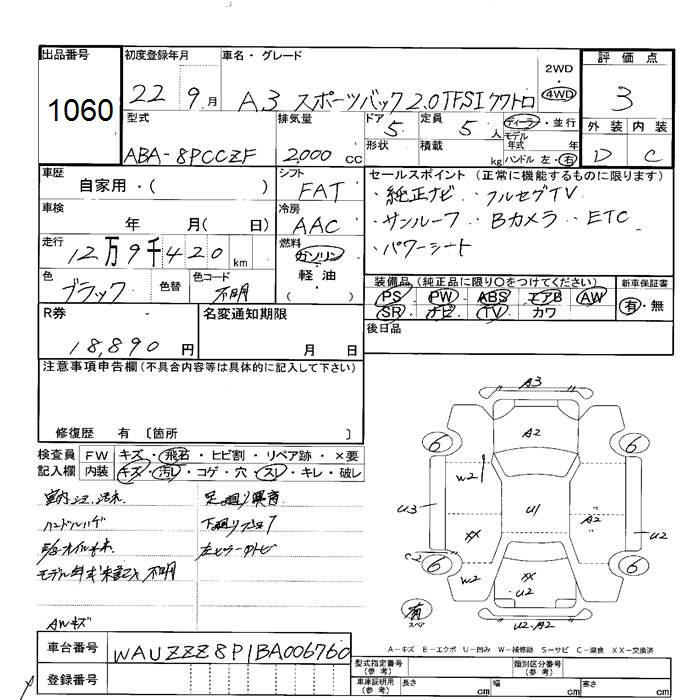 出品番号
1060
初度登録年月
22 9月
車名・グレード
A3 スポーツバック 2.0TFSI クワトロ
2WD
・
4WD
評価点
3
外装 内装
D C
型式
ABA-8PCCZF
排気量
2,000 cc
ドア
5
形状
定員
5 人
積載
kg
ディーラ・並行
モデル
年式 年
ハンドル 左・右
車歴
自家用・( )
シフト
FAT
車検
年 月( 日)
冷房
AAC
走行
12万9千420km
燃料
ガソリン
軽油
( )
色
ブラック
色替
色コード
不明
セールスポイント (正常に機能するものに限ります)
・純正ナビ ・フルセグTV
・サンルーフ ・Bカメラ ・ETC
・パワーシート
装備品(純正品に限り○をつけてください)
PS・PW・ABS・エアB・AW
SR・ナビ・TV・カワ
新車保証書
有・無
後日品
R券
18,890円
名変通知期限
月 日
注意事項申告欄(不具合内容等は具体的に記入して下さい)
修復歴 有 〔箇所 〕
検査員
記入欄
FW キズ・飛石・ヒビ割・リペア跡・×要
内装 キズ・汚レ・コゲ・穴・スレ・キレ・破レ
AWキズ
A3
A2
6
6
W2
U3
U1
A2
U2
XX
C2
6
6
W2
XX
U2
有
スペア
U2・A2
A-キズ E-エクボ U-凹み W-補修跡 S-サビ C-腐食 XX-交換済
車台番号
WAUZZZ8P1BA006760
登録番号
型式指定番号
(参考)
類別区分番号
(参考)
車庫証明用
(参考)
長さ cm
幅 cm
高さ cm